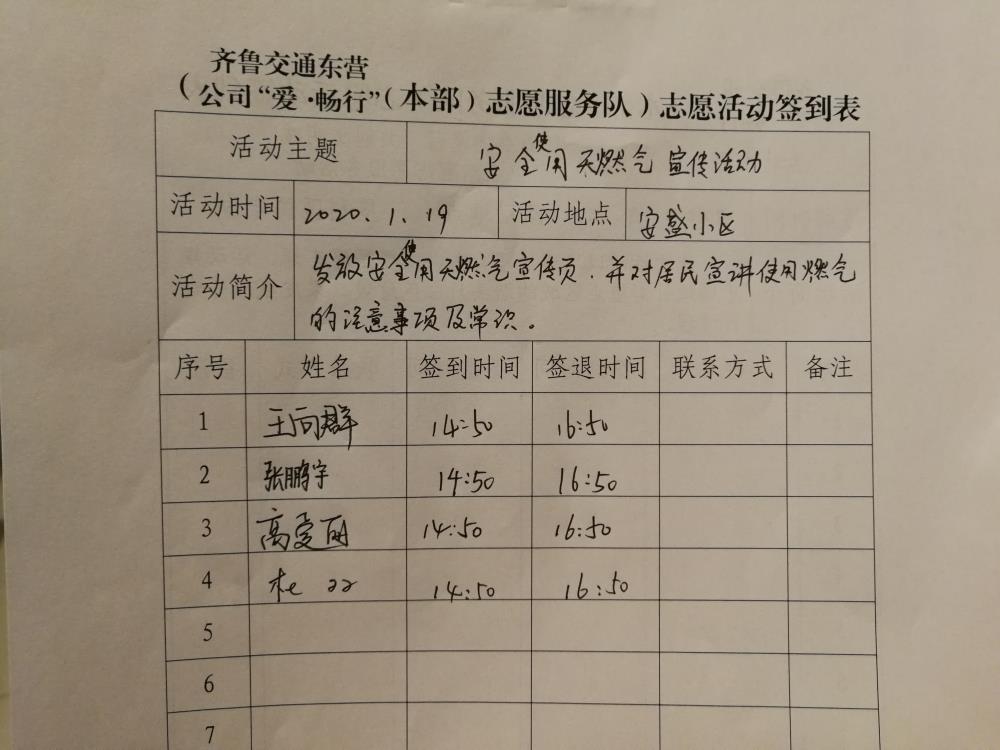 齐鲁交通东营
（公司“爱·畅行”（本部）志愿服务队）志愿活动签到表
活动主题 安全使用天燃气宣传活动
活动时间 2020.1.19 活动地点 安盛小区
活动简介 发放安全使用天燃气宣传页.并对居民宣讲使用燃气
的注意事项及常识。
序号 姓名 签到时间 签退时间 联系方式 备注
1 王向群 14:50 16:50
2 张鹏宇 14:50 16:50
3 高爱丽 14:50 16:50
4 14:50 16:50
5
6
7